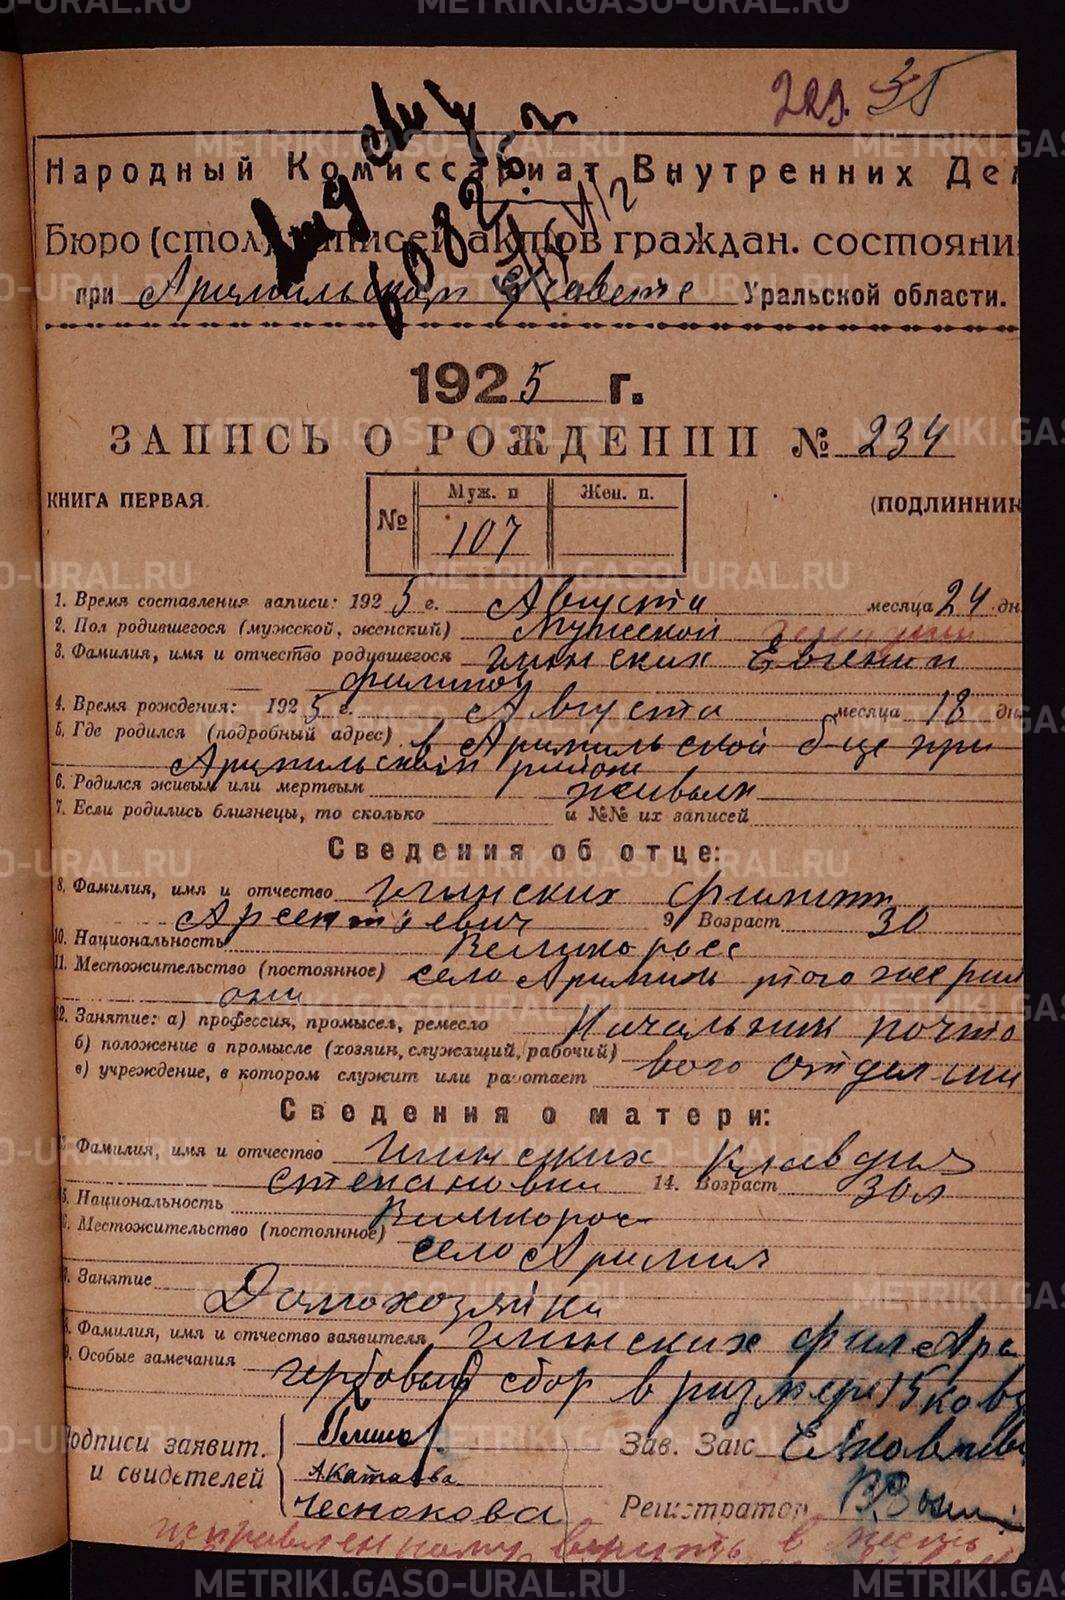 35
Народный Комиссариат Внутренних Дел
Бюро (стол) записей актов граждан. состояни
при Арамильском Уральской области.
1925 г.
ЗАПИСЬ О РОЖДЕНИИ № 234
КНИГА ПЕРВАЯ. (ПОДЛИННИК
№ Муж. п Жен. п.
107
1. Время составления записи: 1925 г. Августа месяца 24 дн
2. Пол родившегося (мужской, женский) Мужеской
3. Фамилия, имя и отчество родившегося Евгений
Филипов
4. Время рождения: 1925 г. Августа месяца 18 дн.
5. Где родился (подробный адрес) в Арамильской б-це при
Арамильском районе
6. Родился живым или мертвым живым
7. Если родились близнецы, то сколько и №№ их записей
Сведения об отце:
8. Фамилия, имя и отчество Филипп
Арсентьевич 9 Возраст 30
10. Национальность Великоросс
11. Местожительство (постоянное) село Арамиль того же рай
она
12. Занятие: а) профессия, промысел, ремесло Начальник почто
б) положение в промысле (хозяин, служащий, рабочий) вого отделения
в) учреждение, в котором служит или работает
Сведения о матери:
Фамилия, имя и отчество Клавдия
Степановна 14. Возраст 30 л
Национальность Великорос
Местожительство (постоянное)
село Арамиль
Занятие
Домохозяйка
Фамилия, имя и отчество заявителя Фил Арс
Особые замечания гербовый сбор в размере 15 ко вз
Подписи заявит. Зав. Загс
и свидетелей А Катаева
Чеснокова Регистратор
METRIKI.GASO-URAL.RU